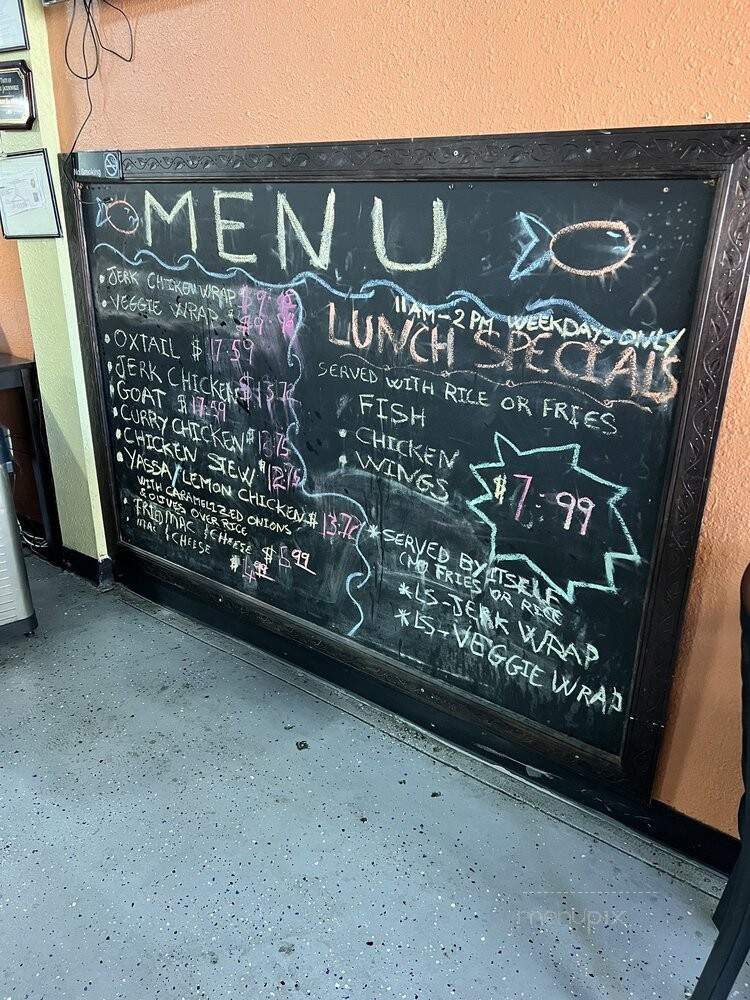 No Smoking
MENU
• JERK CHICKEN WRAP
• VEGGIE WRAP
• OXTAIL $17.59
• JERK CHICKEN
GOAT $17.59
• CURRY CHICKEN
• CHICKEN STEW
• YASSA / LEMON CHICKEN
WITH CARAMELIZED ONIONS
& OLIVES OVER RICE
• FRIED MAC & CHEESE
MAC & CHEESE
11AM-2PM WEEKDAYS ONLY
LUNCH SPECIALS
SERVED WITH RICE OR FRIES
FISH
• CHICKEN
• WINGS
$7.99
*SERVED BY ITSELF
(NO FRIES OR RICE
*LS-JERK WRAP
*LS-VEGGIE WRAP
menupix